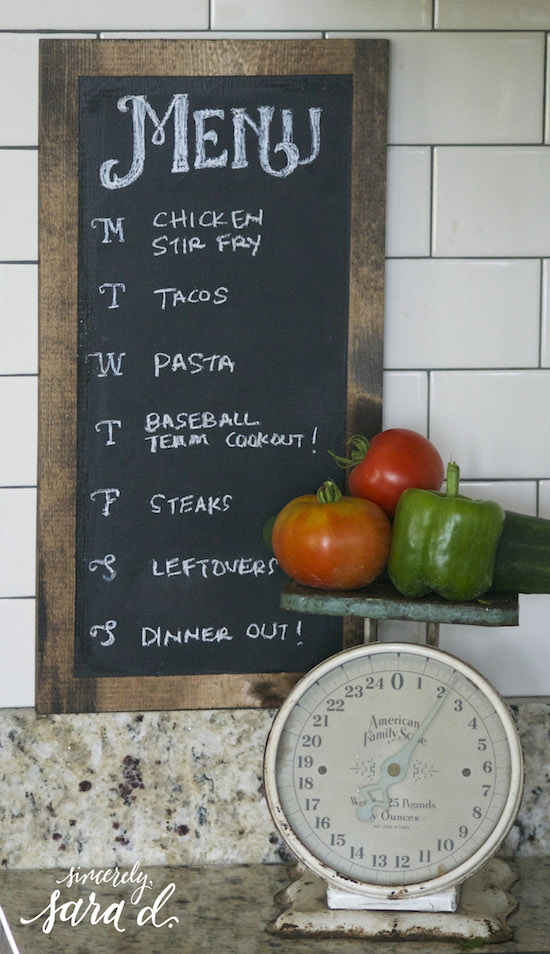 MENU
M CHICKEN
STIR FRY
T TACOS
W PASTA
T BASEBALL
TEAM COOKOUT!
F STEAKS
S LEFTOVERS
S DINNER OUT!
0 1 2 3 4 5 6 7 8 9 10 11 12 13 14 15 16 17 18 19 20 21 22 23 24
American
Family Scale
25 Pounds
By Ounces
sincerely,
sara d.